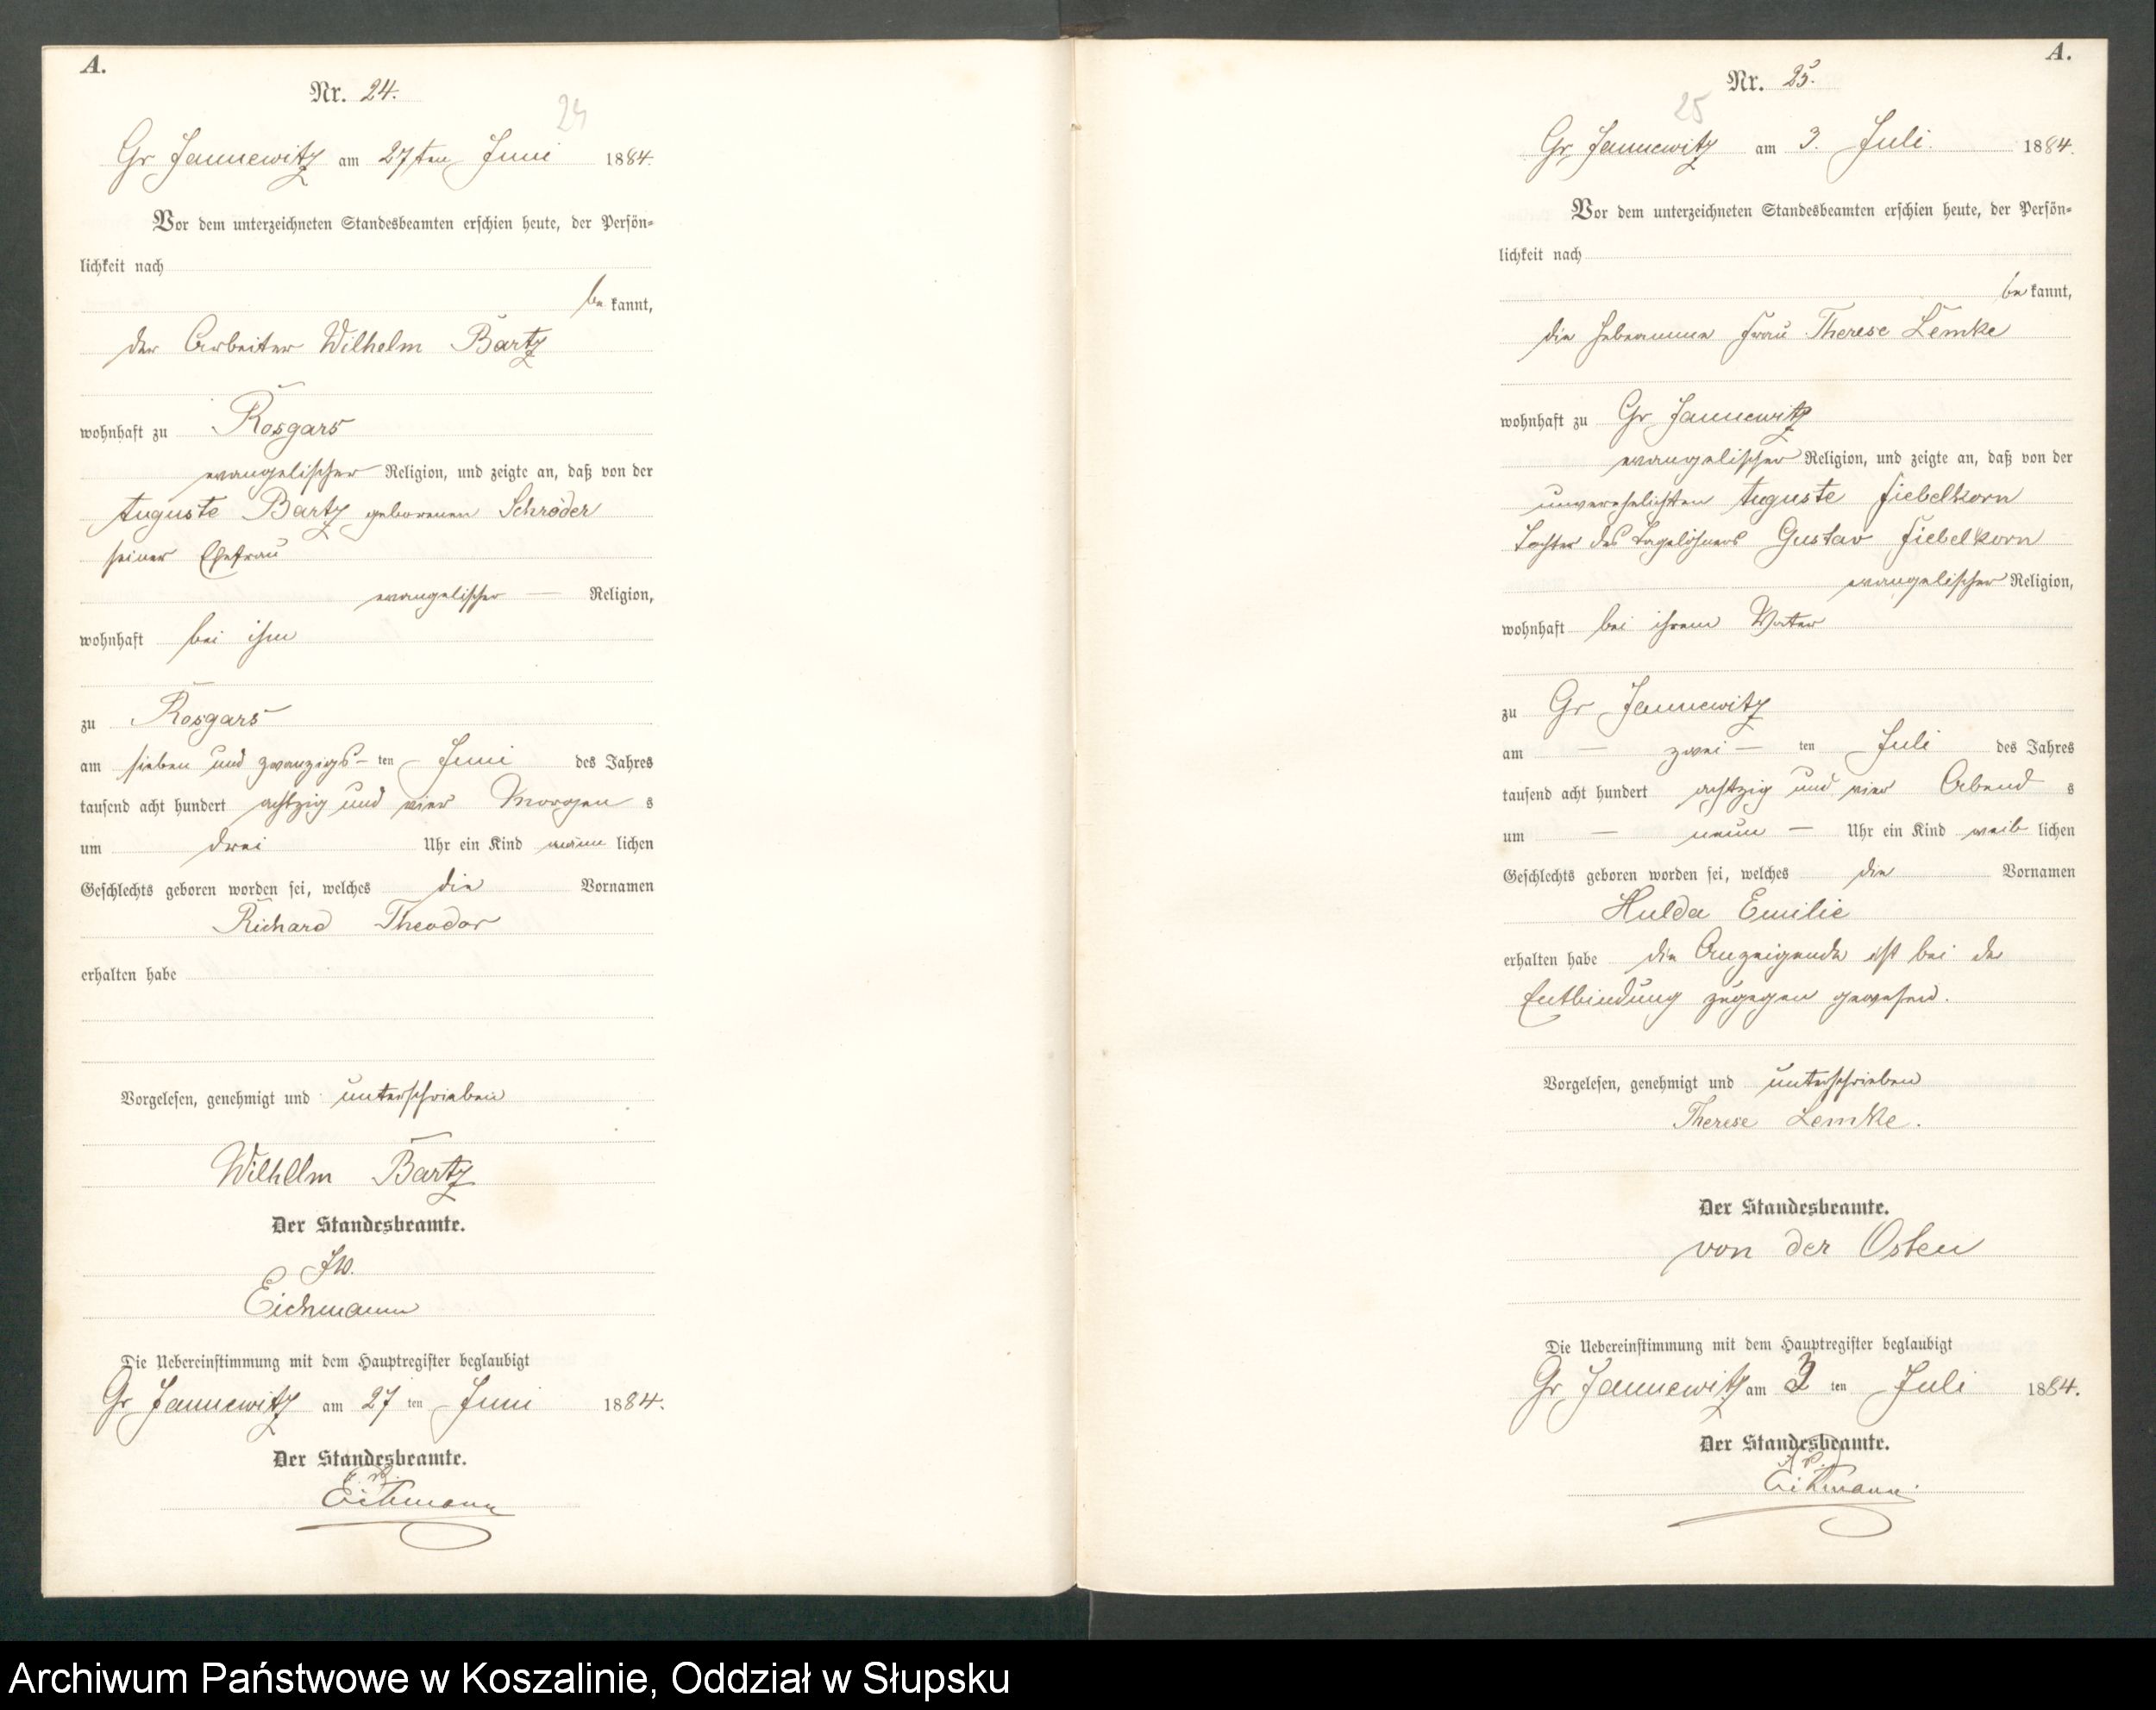 A.
Nr. 24.
24
Gr Jannewitz am 27ten Juni 1884.
Vor dem unterzeichneten Standesbeamten erschien heute, der Persön-
lichkeit nach
be kannt,
der Arbeiter Wilhelm Bartz
wohnhaft zu Rosgars
evangelischer Religion, und zeigte an, daß von der
Auguste Bartz geborenen Schröder
seiner Ehefrau
evangelischer — Religion,
wohnhaft bei ihm
zu Rosgars
am sieben und zwanzigs- ten Juni des Jahres
tausend acht hundert achtzig und vier Morgen s
um drei Uhr ein Kind männ lichen
Geschlechts geboren worden sei, welches die Vornamen
Richard Theodor
erhalten habe
Vorgelesen, genehmigt und unterschrieben
Wilhelm Bartz
Der Standesbeamte.
Eichmann
Die Uebereinstimmung mit dem Hauptregister beglaubigt
Gr Jannewitz am 27 ten Juni 1884.
Der Standesbeamte.
Eichmann
A.
Nr. 25.
25
Gr Jannewitz am 3. Juli. 1884.
Vor dem unterzeichneten Standesbeamten erschien heute, der Persön-
lichkeit nach
be kannt,
die Hebeamme Frau Therese Lemke
wohnhaft zu Gr Jannewitz
evangelischer Religion, und zeigte an, daß von der
unverehelichten Auguste Fiebelkorn
Tochter des Tagelöhners Gustav Fiebelkorn
evangelischer Religion,
wohnhaft bei ihrem Vater
zu Gr Jannewitz
am — zwei — ten Juli des Jahres
tausend acht hundert achtzig und vier Abend s
um — neun — Uhr ein Kind weib lichen
Geschlechts geboren worden sei, welches die Vornamen
Hulda Emilie
erhalten habe die Anzeigende ist bei der
Entbindung zugegen gewesen.
Vorgelesen, genehmigt und unterschrieben
Therese Lemke.
Der Standesbeamte.
von der Osten
Die Uebereinstimmung mit dem Hauptregister beglaubigt
Gr Jannewitz am 3 ten Juli 1884.
Der Standesbeamte.
Eichmann.
Archiwum Państwowe w Koszalinie, Oddział w Słupsku